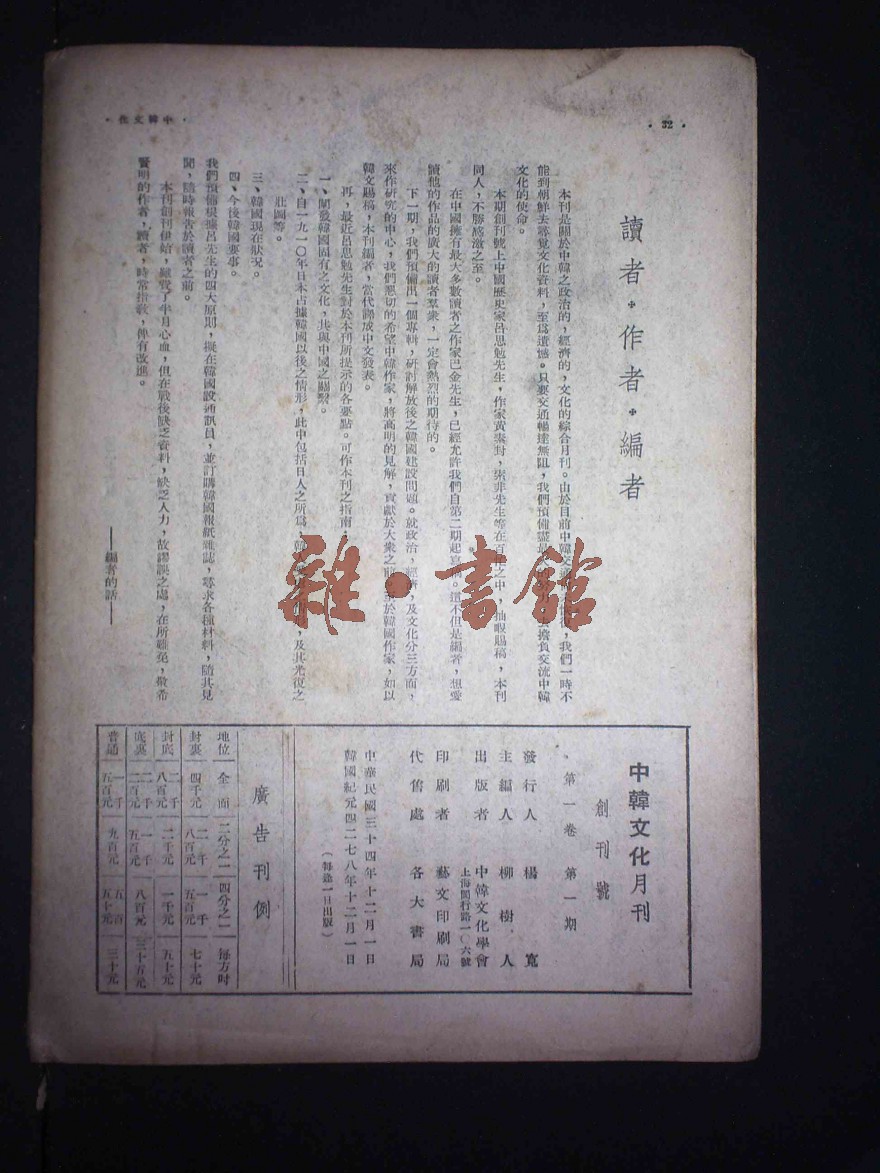 · 32 ·
中韓文化
讀者·作者·編者
本刊是關於中韓之政治的，經濟的，文化的綜合月刊。由於目前中韓交
，我們一時不
能到朝鮮去尋覓文化資料，至爲遺憾。只要交通暢達無阻，我們預備盡最
去擔負交流中韓
文化的使命。
本期創刊號上中國歷史家呂思勉先生，作家黃素封，索非先生等在百忙之中，抽暇賜稿，本刊
同人，不勝感激之至。
在中國擁有最大多數讀者之作家巴金先生，已經允許我們自第二期起寫稿。這不但是編者，想愛
讀他的作品的廣大的讀者羣衆，一定會熱烈的期待的。
下一期，我們預備出一個專輯，研討解放後之韓國建設問題。就政治，經濟，及文化分三方面，
來作研究的中心，我們懇切的希望中韓作家，將高明的見解，貢獻於大衆之前。至於韓國作家，如以
韓文賜稿，本刊編者，當代譯成中文發表。
再，最近呂思勉先生對於本刊所提示的各要點。可作本刊之指南，
一、闡發韓國固有之文化，其與中國之關繫。
二、自一九一〇年日本占據韓國以後之情形，此中包括日人之所爲，韓人
，及其光復之
壯圖等。
三、韓國現在狀況。
四、今後韓國要事。
我們預備根據呂先生的四大原則，擬在韓國設通訊員，並訂購韓國報紙雜誌，尋求各種材料，隨其見
聞，隨時報告於讀者之前。
本刊創刊伊始，雖費了半月心血，但在戰後缺乏資料，缺乏人力，故謬誤之處，在所難免，敬希
賢明的作者，讀者，時常指敎，俾有改進。
——編者的話——
中韓文化月刊
創刊號
第一卷 第一期
發行人 楊寬
主編人 柳樹人
出版者 中韓文化學會
上海閔行路一〇六號
印刷者 藝文印刷局
代售處 各大書局
中華民國三十四年十二月一日
韓國紀元四二七八年十二月一日
（每逢一日出版）
廣告刊例
地位 全面 二分之一 四分之一 每方吋
封裏 四千元 二千八百元 一千五百元 七十元
封底 二千八百元 二千元 一千元 五十元
底裏 二千二百元 一千五百元 八百元 三十五元
普通 一千五百元 九百元 五百五十元 三十元
雜·書館